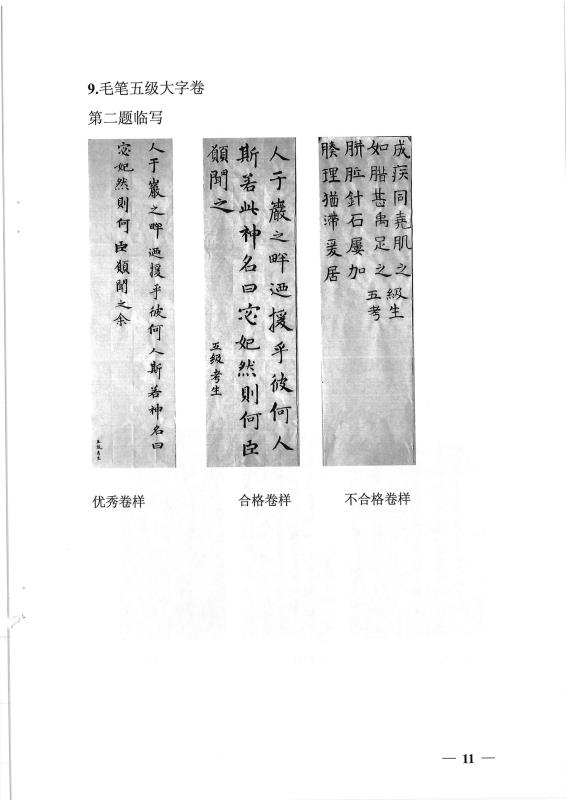 9.毛笔五级大字卷
第二题临写
人于巖之畔迺援乎彼何人斯若神名曰
宓妃然则何臣願聞之余
五级考生
人于巖之畔迺援乎彼何人
斯若此神名曰宓妃然則何臣
願聞之
五级考生
成疾同堯肌之級生
如腊甚禹足之五考
胼胝針石屢加
腠理猶滯爰居
优秀卷样
合格卷样
不合格卷样
— 11 —